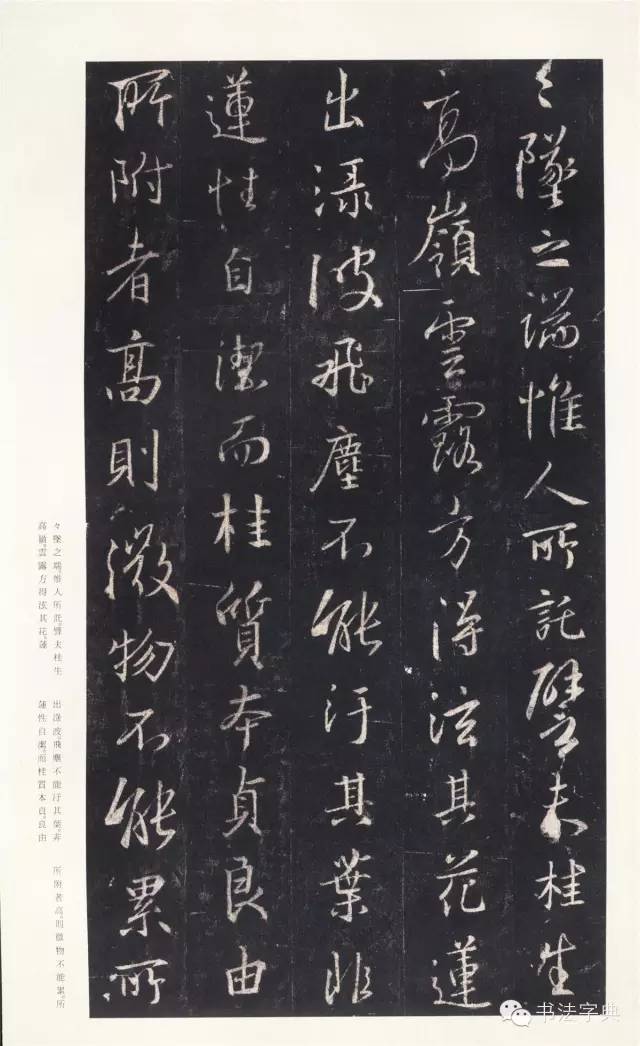 々墜之端惟人所託譬夫桂生
高嶺雲露方得泫其花蓮
出淥波飛塵不能汙其葉非
蓮性自潔而桂質本貞良由
所附者高則微物不能累所
々墜之端。惟人所託。譬夫桂生
高嶺。雲露方得泫其花。蓮
出淥波。飛塵不能汙其葉。非
蓮性自潔。而桂質本貞。良由
所附者高。則微物不能累。所
书法字典